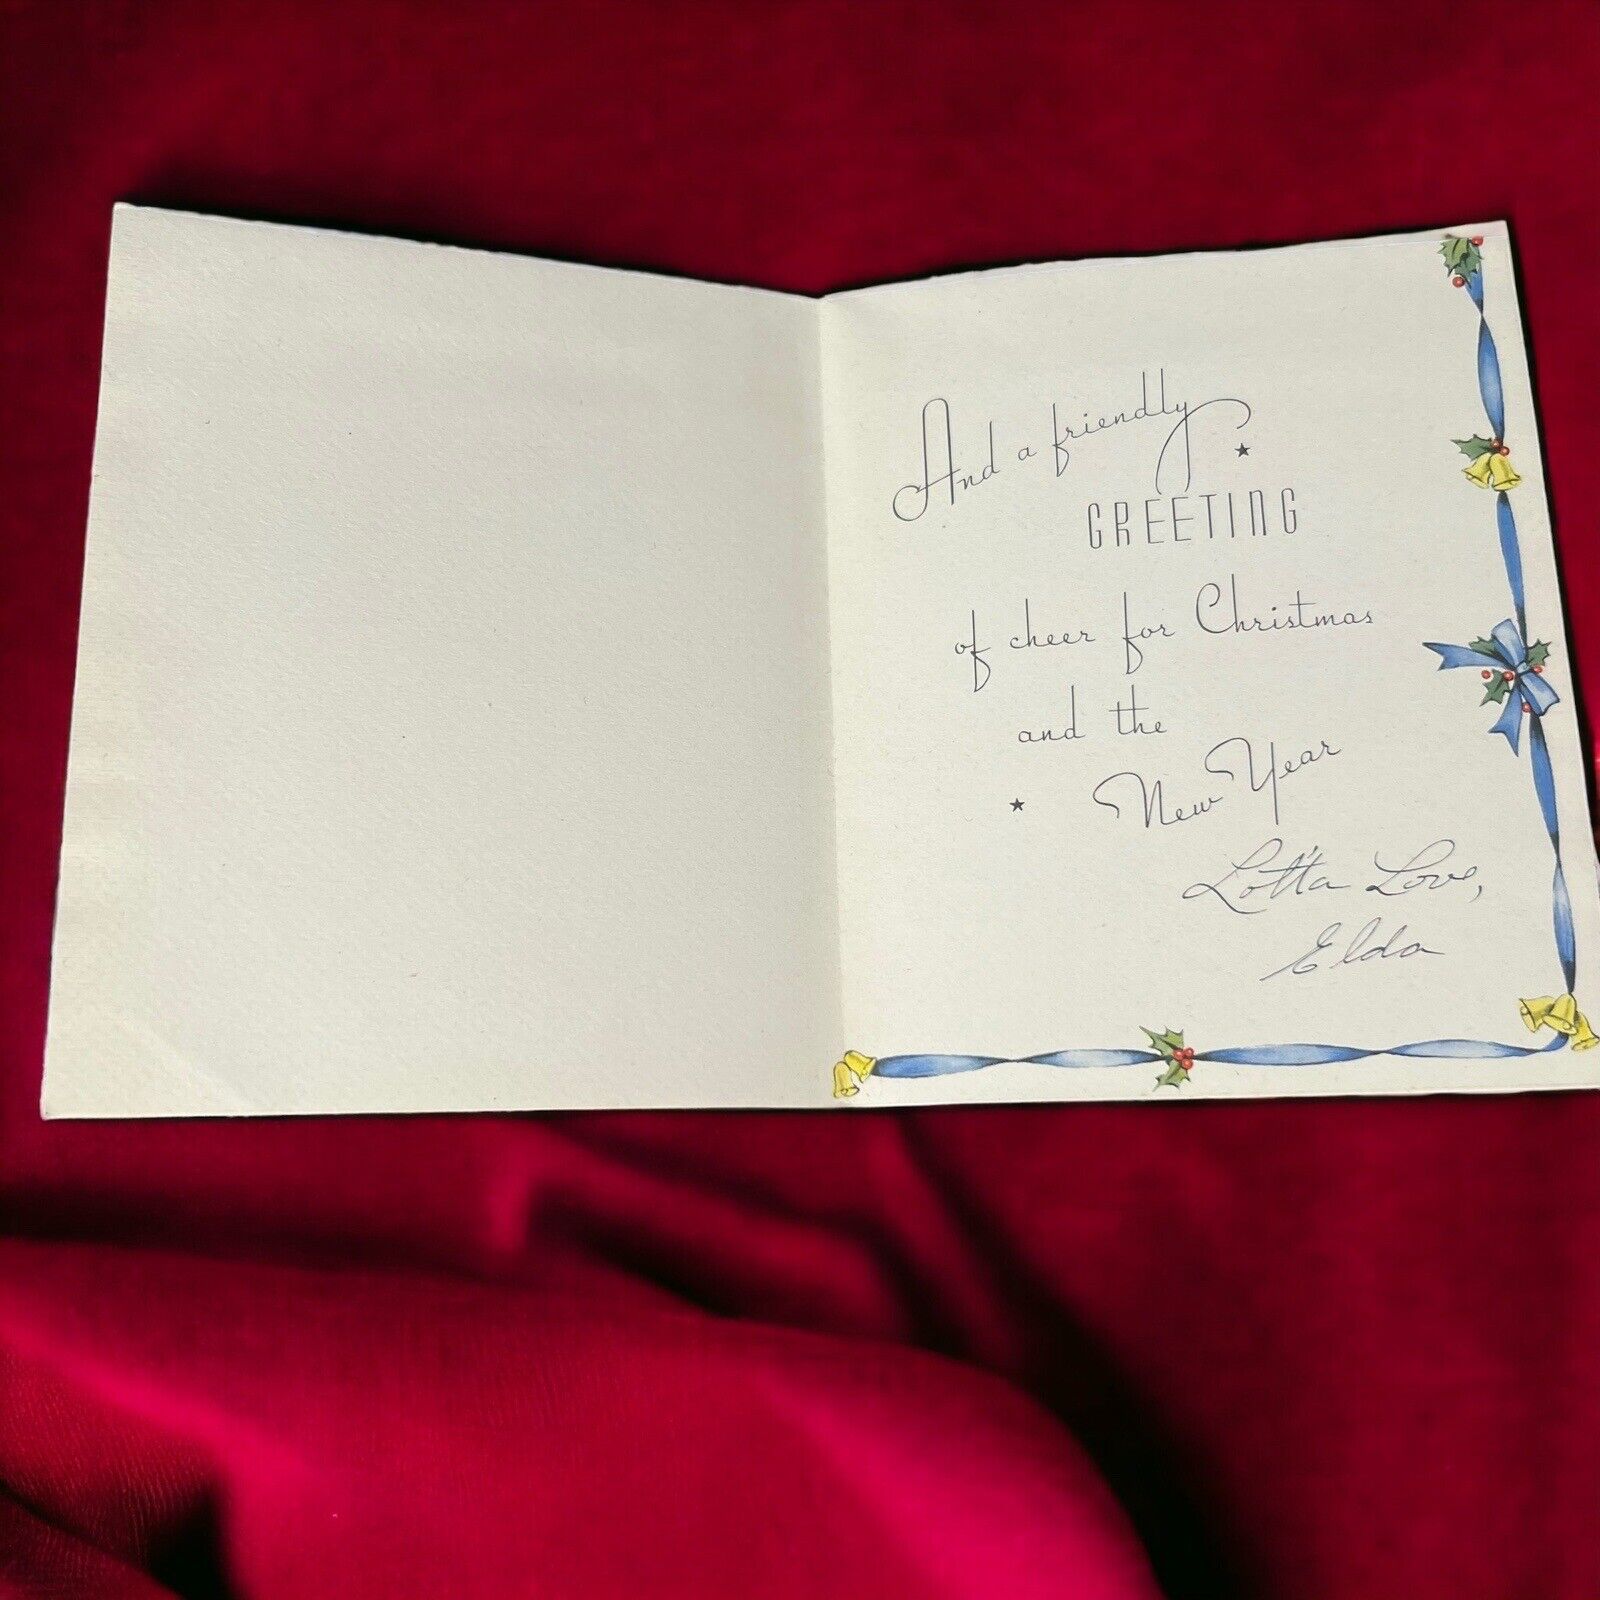 And a friendly
GREETING
of cheer for Christmas
and the
New Year
Lot'ta Love,
Elda